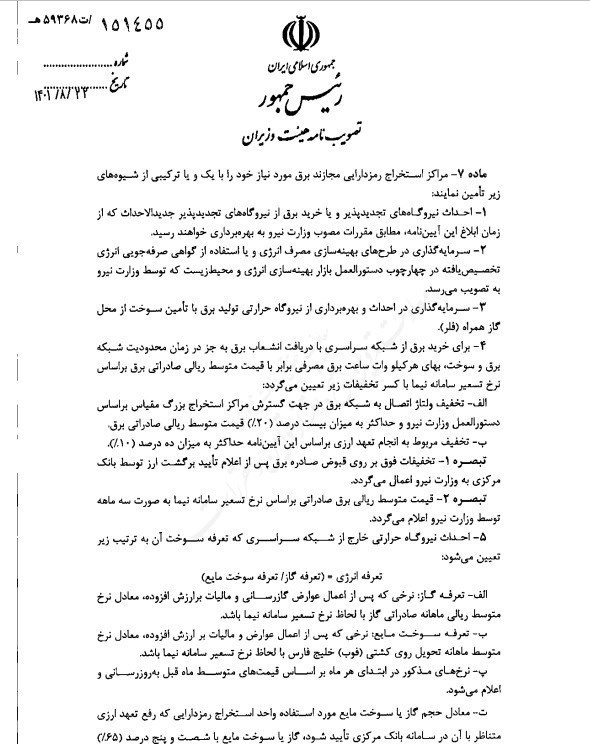 ۱۵۱۴۵۵ /ت۵۹۳۶۸هـ
جمهوری اسلامی ایران
رئیس جمهور
تصویب نامه هیئت وزیران
شماره ......................
تاریخ ......................
۱۴۰۱/۸/۲۲
ماده ۷- مراکز استخراج رمزدارایی مجازند برق مورد نیاز خود را با یک و یا ترکیبی از شیوه‌های
زیر تأمین نمایند:
۱- احداث نیروگاه‌های تجدیدپذیر و یا خرید برق از نیروگاه‌های تجدیدپذیر جدیدالاحداث که از
زمان ابلاغ این آیین‌نامه، مطابق مقررات مصوب وزارت نیرو به بهره‌برداری خواهند رسید.
۲- سرمایه‌گذاری در طرح‌های بهینه‌سازی مصرف انرژی و یا استفاده از گواهی صرفه‌جویی انرژی
تخصیص‌یافته در چهارچوب دستورالعمل بازار بهینه‌سازی انرژی و محیط‌زیست که توسط وزارت نیرو
به تصویب می‌رسد.
۳- سرمایه‌گذاری در احداث و بهره‌برداری از نیروگاه حرارتی تولید برق با تأمین سوخت از محل
گاز همراه (فلر).
۴- برای خرید برق از شبکه سراسری با دریافت انشعاب برق به جز در زمان محدودیت شبکه
برق و سوخت، بهای هرکیلو وات ساعت برق مصرفی برابر با قیمت متوسط ریالی صادراتی برق براساس
نرخ تسعیر سامانه نیما با کسر تخفیفات زیر تعیین می‌گردد:
الف- تخفیف ولتاژ اتصال به شبکه برق در جهت گسترش مراکز استخراج بزرگ مقیاس براساس
دستورالعمل وزارت نیرو و حداکثر به میزان بیست درصد (۲۰٪) قیمت متوسط ریالی صادراتی برق.
ب- تخفیف مربوط به انجام تعهد ارزی براساس این آیین‌نامه حداکثر به میزان ده درصد (۱۰٪).
تبصره ۱- تخفیفات فوق بر روی قبوض صادره برق پس از اعلام تأیید برگشت ارز توسط بانک
مرکزی به وزارت نیرو اعمال می‌گردد.
تبصره ۲- قیمت متوسط ریالی برق صادراتی براساس نرخ تسعیر سامانه نیما به صورت سه ماهه
توسط وزارت نیرو اعلام می‌گردد.
۵- احداث نیروگاه حرارتی خارج از شبکه سراسری که تعرفه سوخت آن به ترتیب زیر
تعیین می‌شود:
تعرفه انرژی = (تعرفه گاز/ تعرفه سوخت مایع)
الف- تعرفه گاز: نرخی که پس از اعمال عوارض گازرسانی و مالیات برارزش افزوده، معادل نرخ
متوسط ریالی ماهانه صادراتی گاز با لحاظ نرخ تسعیر سامانه نیما باشد.
ب- تعرفه سوخت مایع: نرخی که پس از اعمال عوارض و مالیات بر ارزش افزوده، معادل نرخ
متوسط ماهانه تحویل روی کشتی (فوب) خلیج فارس با لحاظ نرخ تسعیر سامانه نیما باشد.
پ- نرخ‌های مذکور در ابتدای هر ماه بر اساس قیمت‌های متوسط ماه قبل به‌روزرسانی و
اعلام می‌شود.
ت- معادل حجم گاز یا سوخت مایع مورد استفاده واحد استخراج رمزدارایی که رفع تعهد ارزی
متناظر با آن در سامانه بانک مرکزی تأیید شود، گاز یا سوخت مایع با شصت و پنج درصد (۶۵٪)